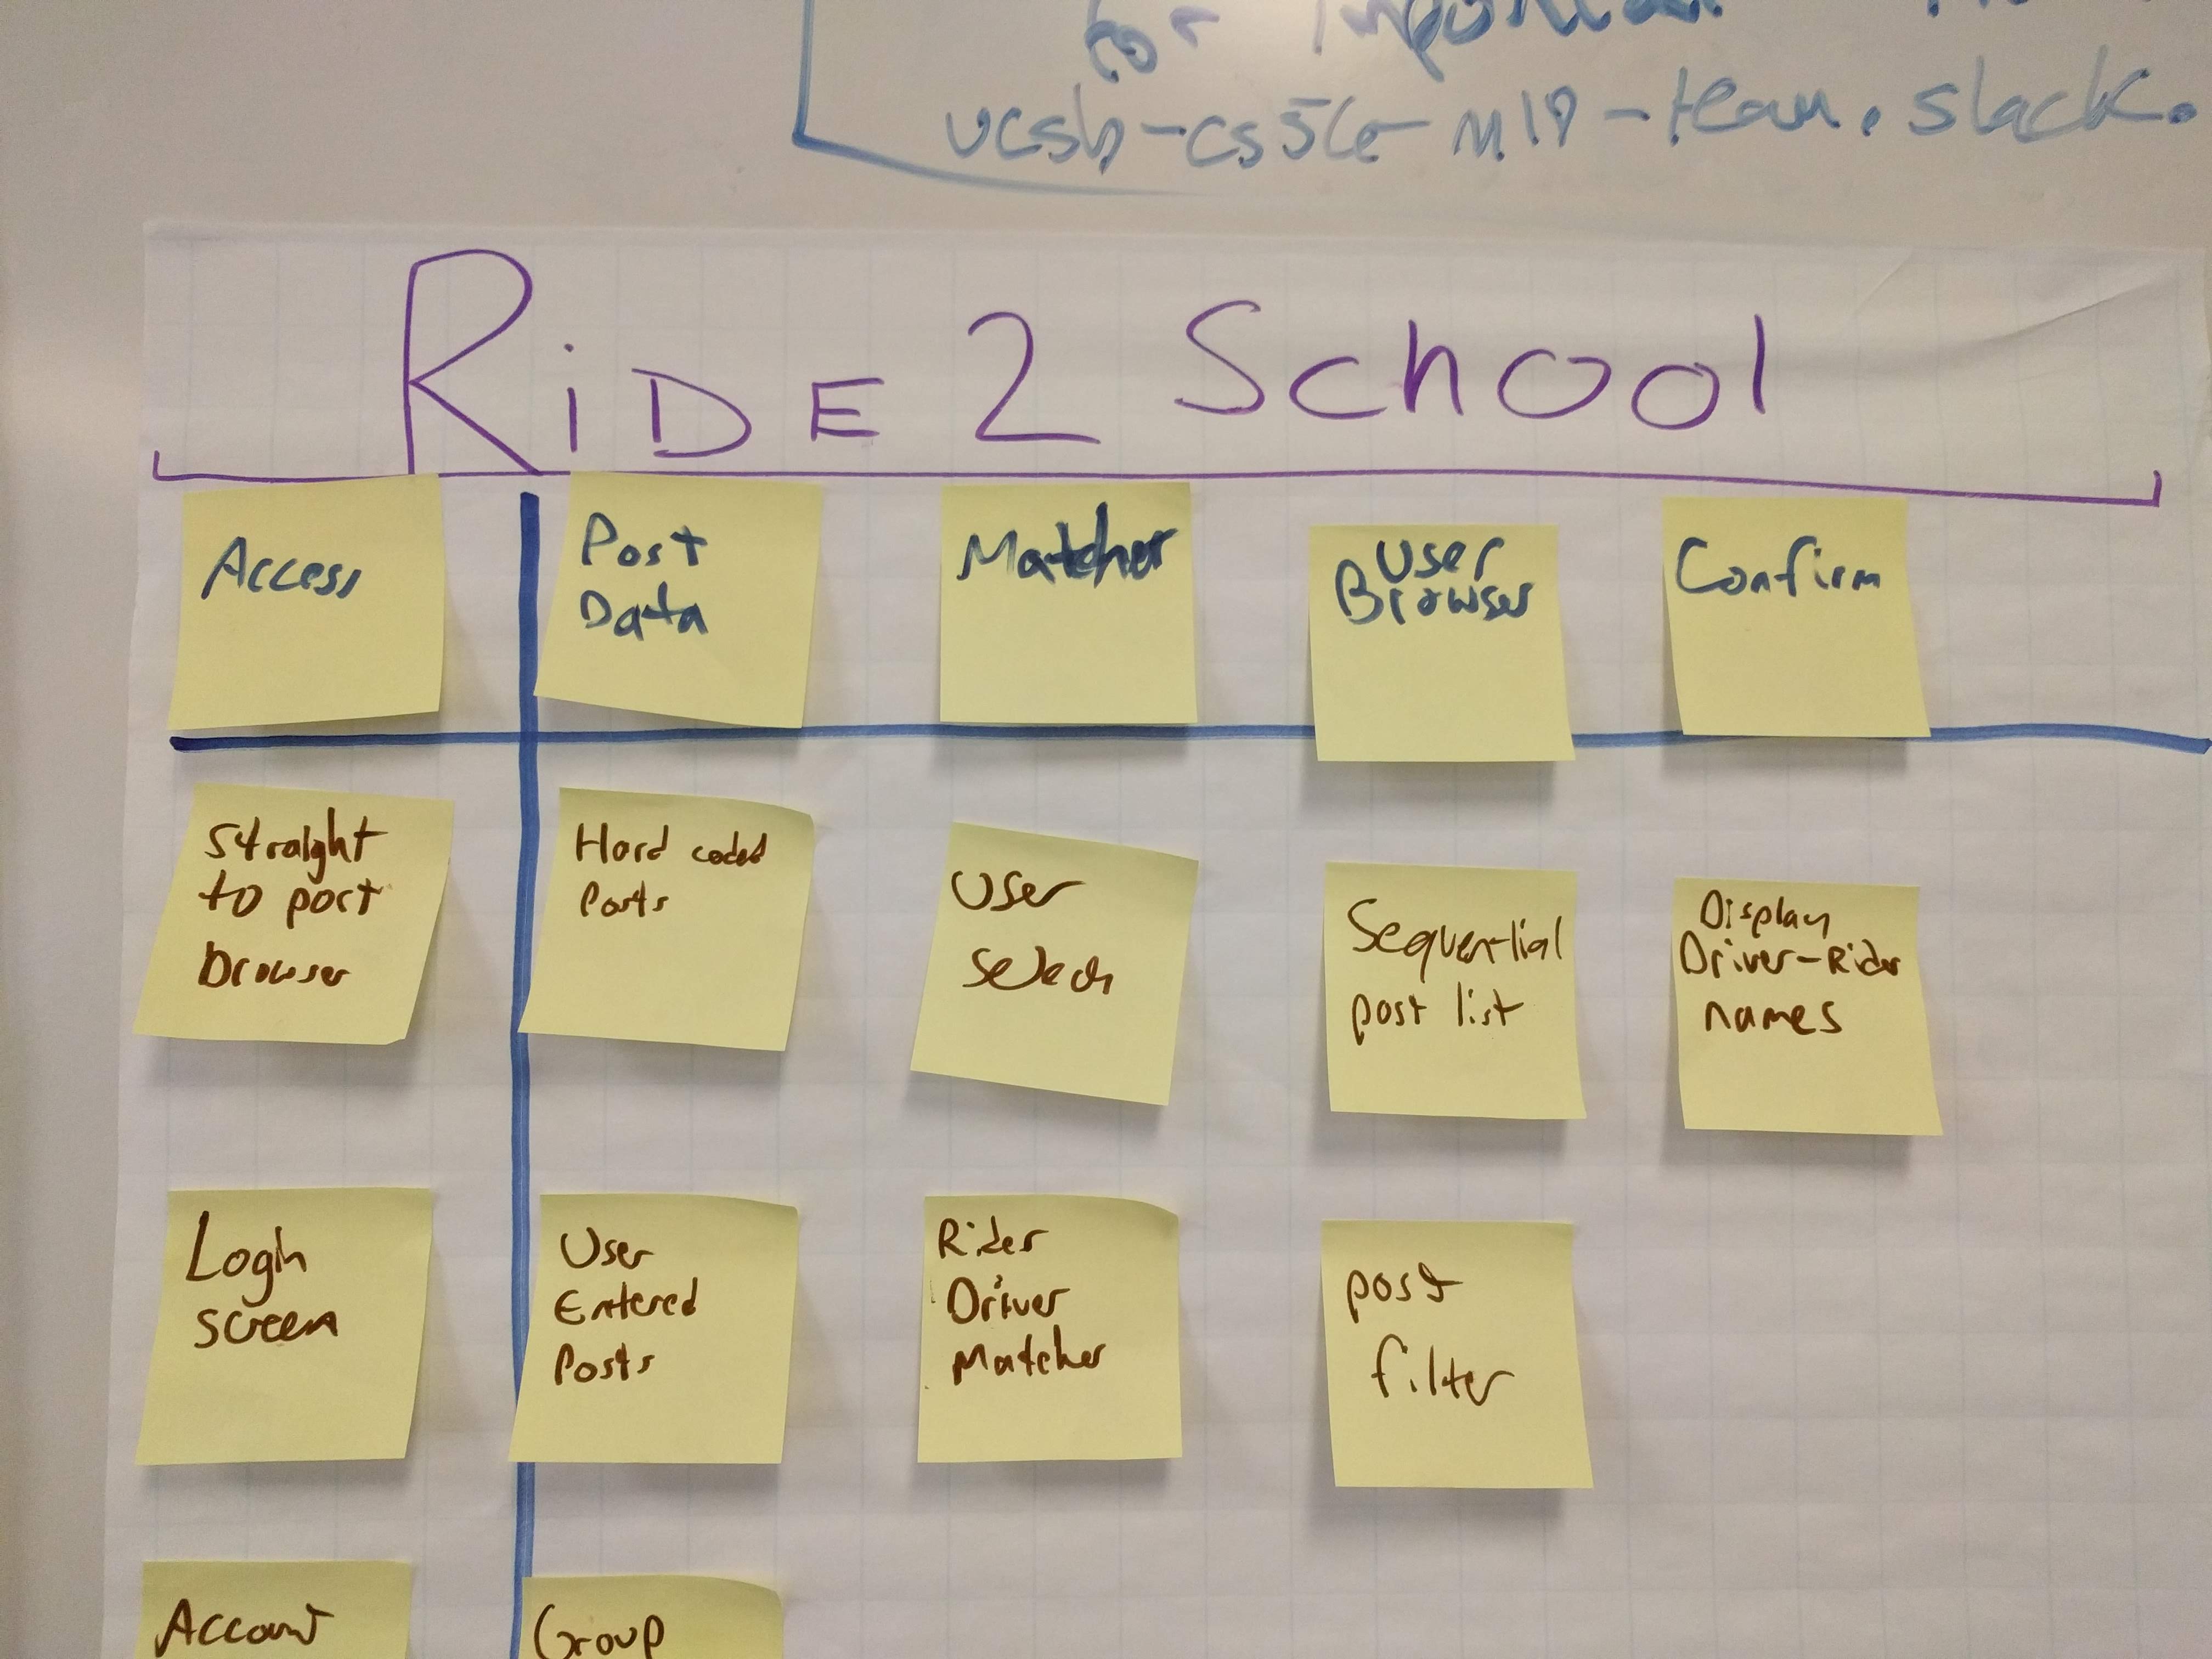 for Important
ucsb-cs56-m18-team.slack.
RiDE 2 School
Access
Post
Data
Matcher
User
Browser
Confirm
Straight
to post
browser
Hard coded
Posts
User
Select
Sequential
post list
Display
Driver-Rider
names
Login
screen
User
Entered
Posts
Rider
Driver
Matcher
post
filter
Account
Group